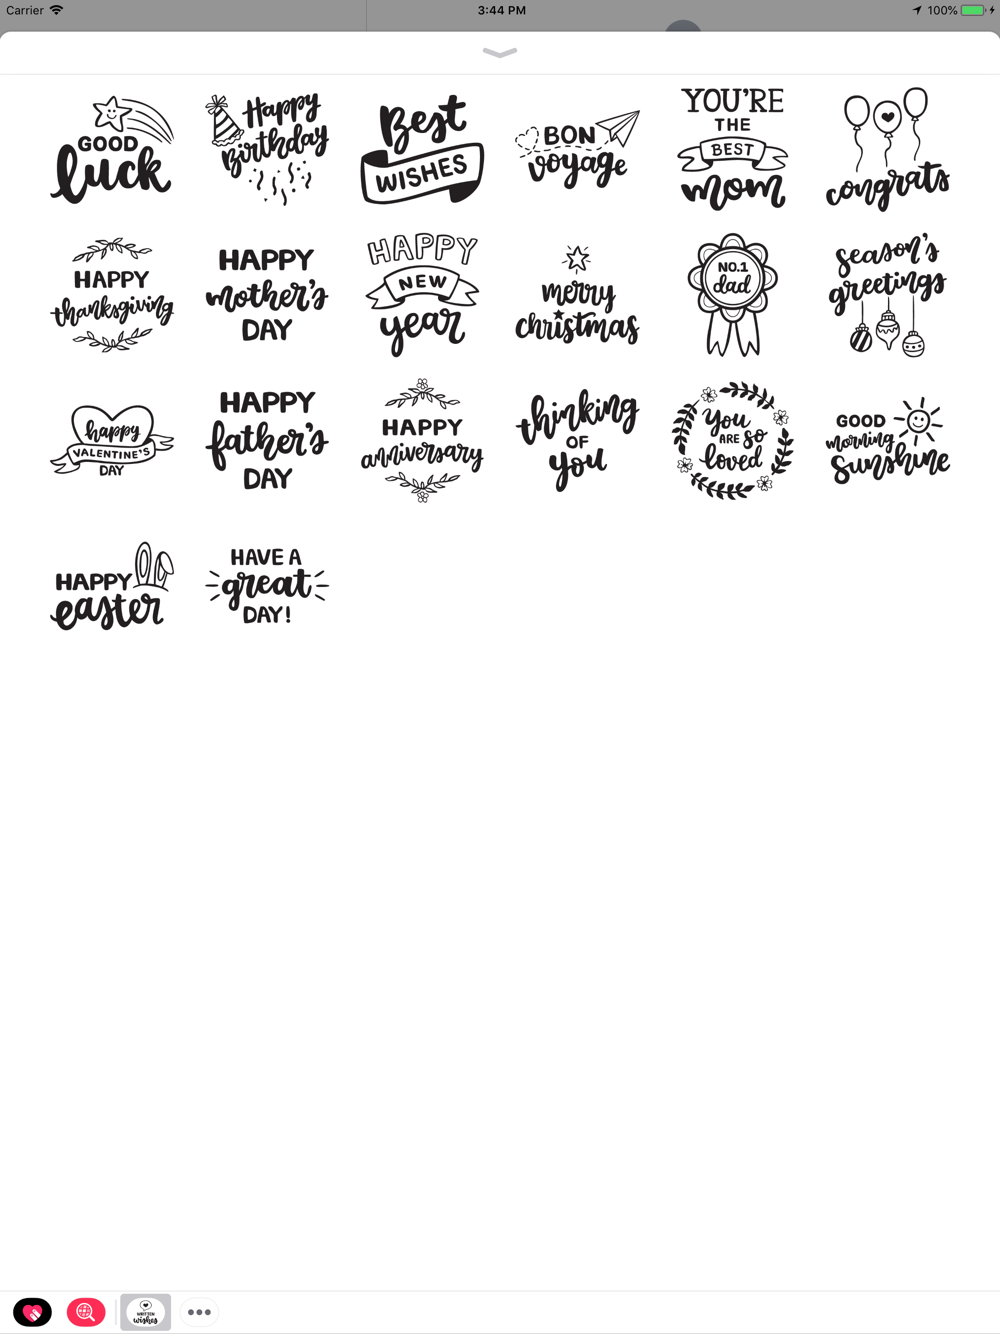 Carrier
3:44 PM
100%
GOOD
luck
Happy
Birthday
Best
WISHES
BON
voyage
YOU'RE
THE
BEST
mom
congrats
HAPPY
thanksgiving
HAPPY
mother's
DAY
HAPPY
NEW
year
merry
christmas
NO.1
dad
season's
greetings
happy
VALENTINE'S
DAY
HAPPY
father's
DAY
HAPPY
anniversary
thinking
OF
you
You
ARE so
loved
GOOD
morning
sunshine
HAPPY
easter
HAVE A
great
DAY!
WRITTEN
wishes